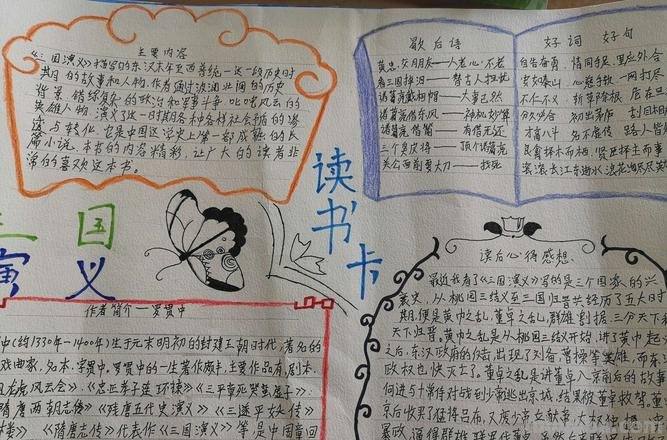 主要内容
《三国演义》描写的东汉末年至西晋统一这一段历史时
期的故事和人物。作者通过波澜壮阔的历史
背景、错综复杂的政治和军事斗争、叱咤风云的
英雄人物,演义了这一时期各种各样社会矛盾的
与转化,也是中国小说史上第一部成熟的长
篇小说。本书的内容精彩,让广大的读者非
常的喜欢这本书。
歇后语
黄忠交朋友——人老心不老
看三国掉泪——替古人担忧
诸葛亮戴相帽——大事已然
诸葛亮借东风——神机妙算
诸葛亮借箭——有借无还
三个臭皮将——顶个诸葛亮
关公面前耍大刀——找死
好词 好句
自告奋勇 情同手足 里应外合
安如泰山 心慈手软 一网打尽
不仁不义 斩草除根 居在
初出茅庐 刮目相
才高八斗 名不虚传 路人皆
良禽择木而栖,贤臣择主而事
滚滚长江东逝水,浪花淘尽英
三国
演义
读书卡
作者简介—罗贯中
中(约1330年-1400年)生于元末明初的封建王朝时代,著名的
戏曲家,名本,字贯中。罗贯中的一生著作颇丰,主要作品有,剧本
风云会》、《忠正孝子连环谏》、《三平章死哭蜚虎子》、
隋唐两朝志传》《残唐五代史演义》《三遂平妖传》
《隋唐志传》代表作《三国演义》等是中国章回
读后心得感想.
最近我看了《三国演义》写的是三个国家的兴
衰史,从桃园三结义至三国归晋共经历了五大时
期,便是黄巾之乱,董卓之乱,群雄割据,三分天下和
天下归晋。黄巾之乱是从桃园三结义开始,讲了黄巾起
之后,东汉政府的介结,出现了刘备、曹操等英雄,而东
政权也快灭亡了。董卓之乱是讲董卓入京前后的故事
何进与十常侍对战到少帝逃出京城,结果被董卓救驾,董
京后收买了猛将吕布,又废少帝立献帝